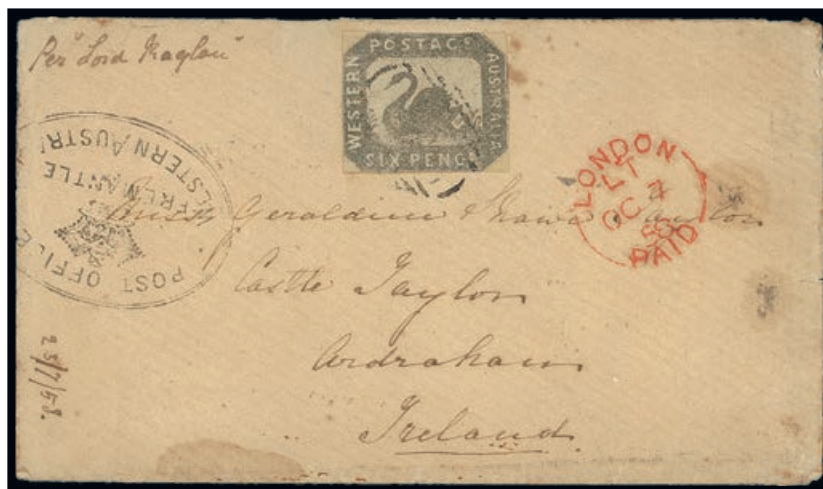 Per "Lord Raglan"
POSTAGE
WESTERN
AUSTRALIA
SIX PENC
POST OFFICE
FREMANTLE
WESTERN AUSTR
LONDON
LT
OC 4
58
PAID
Miss Geraldine Shawe Taylor
Castle Taylor
Ardrahan
Ireland
25/7/58.